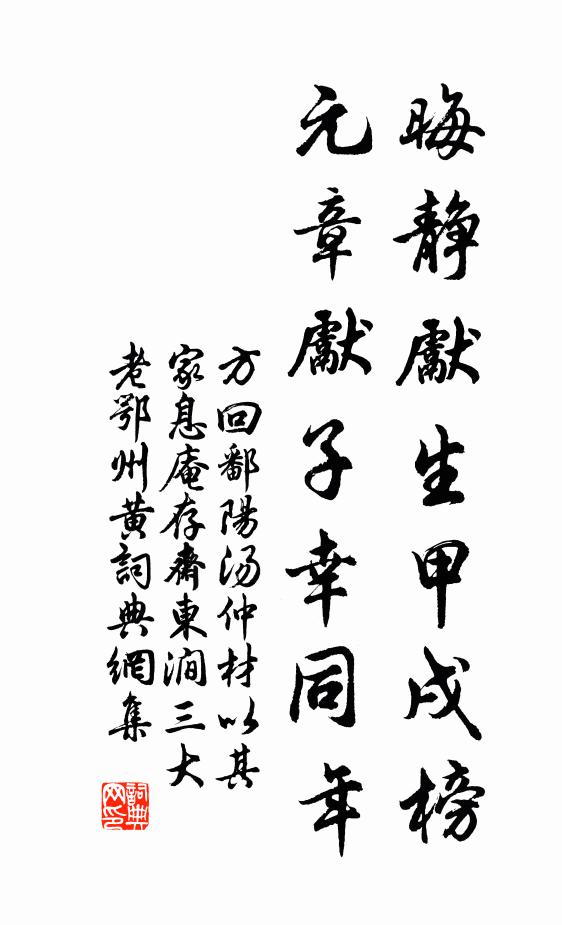 晦静獻生甲戌榜
元章獻子幸同年
方回鄱陽汤仲材以其
家息庵存齋東涧三大
老鄂州黄詞典網集
詞典网印